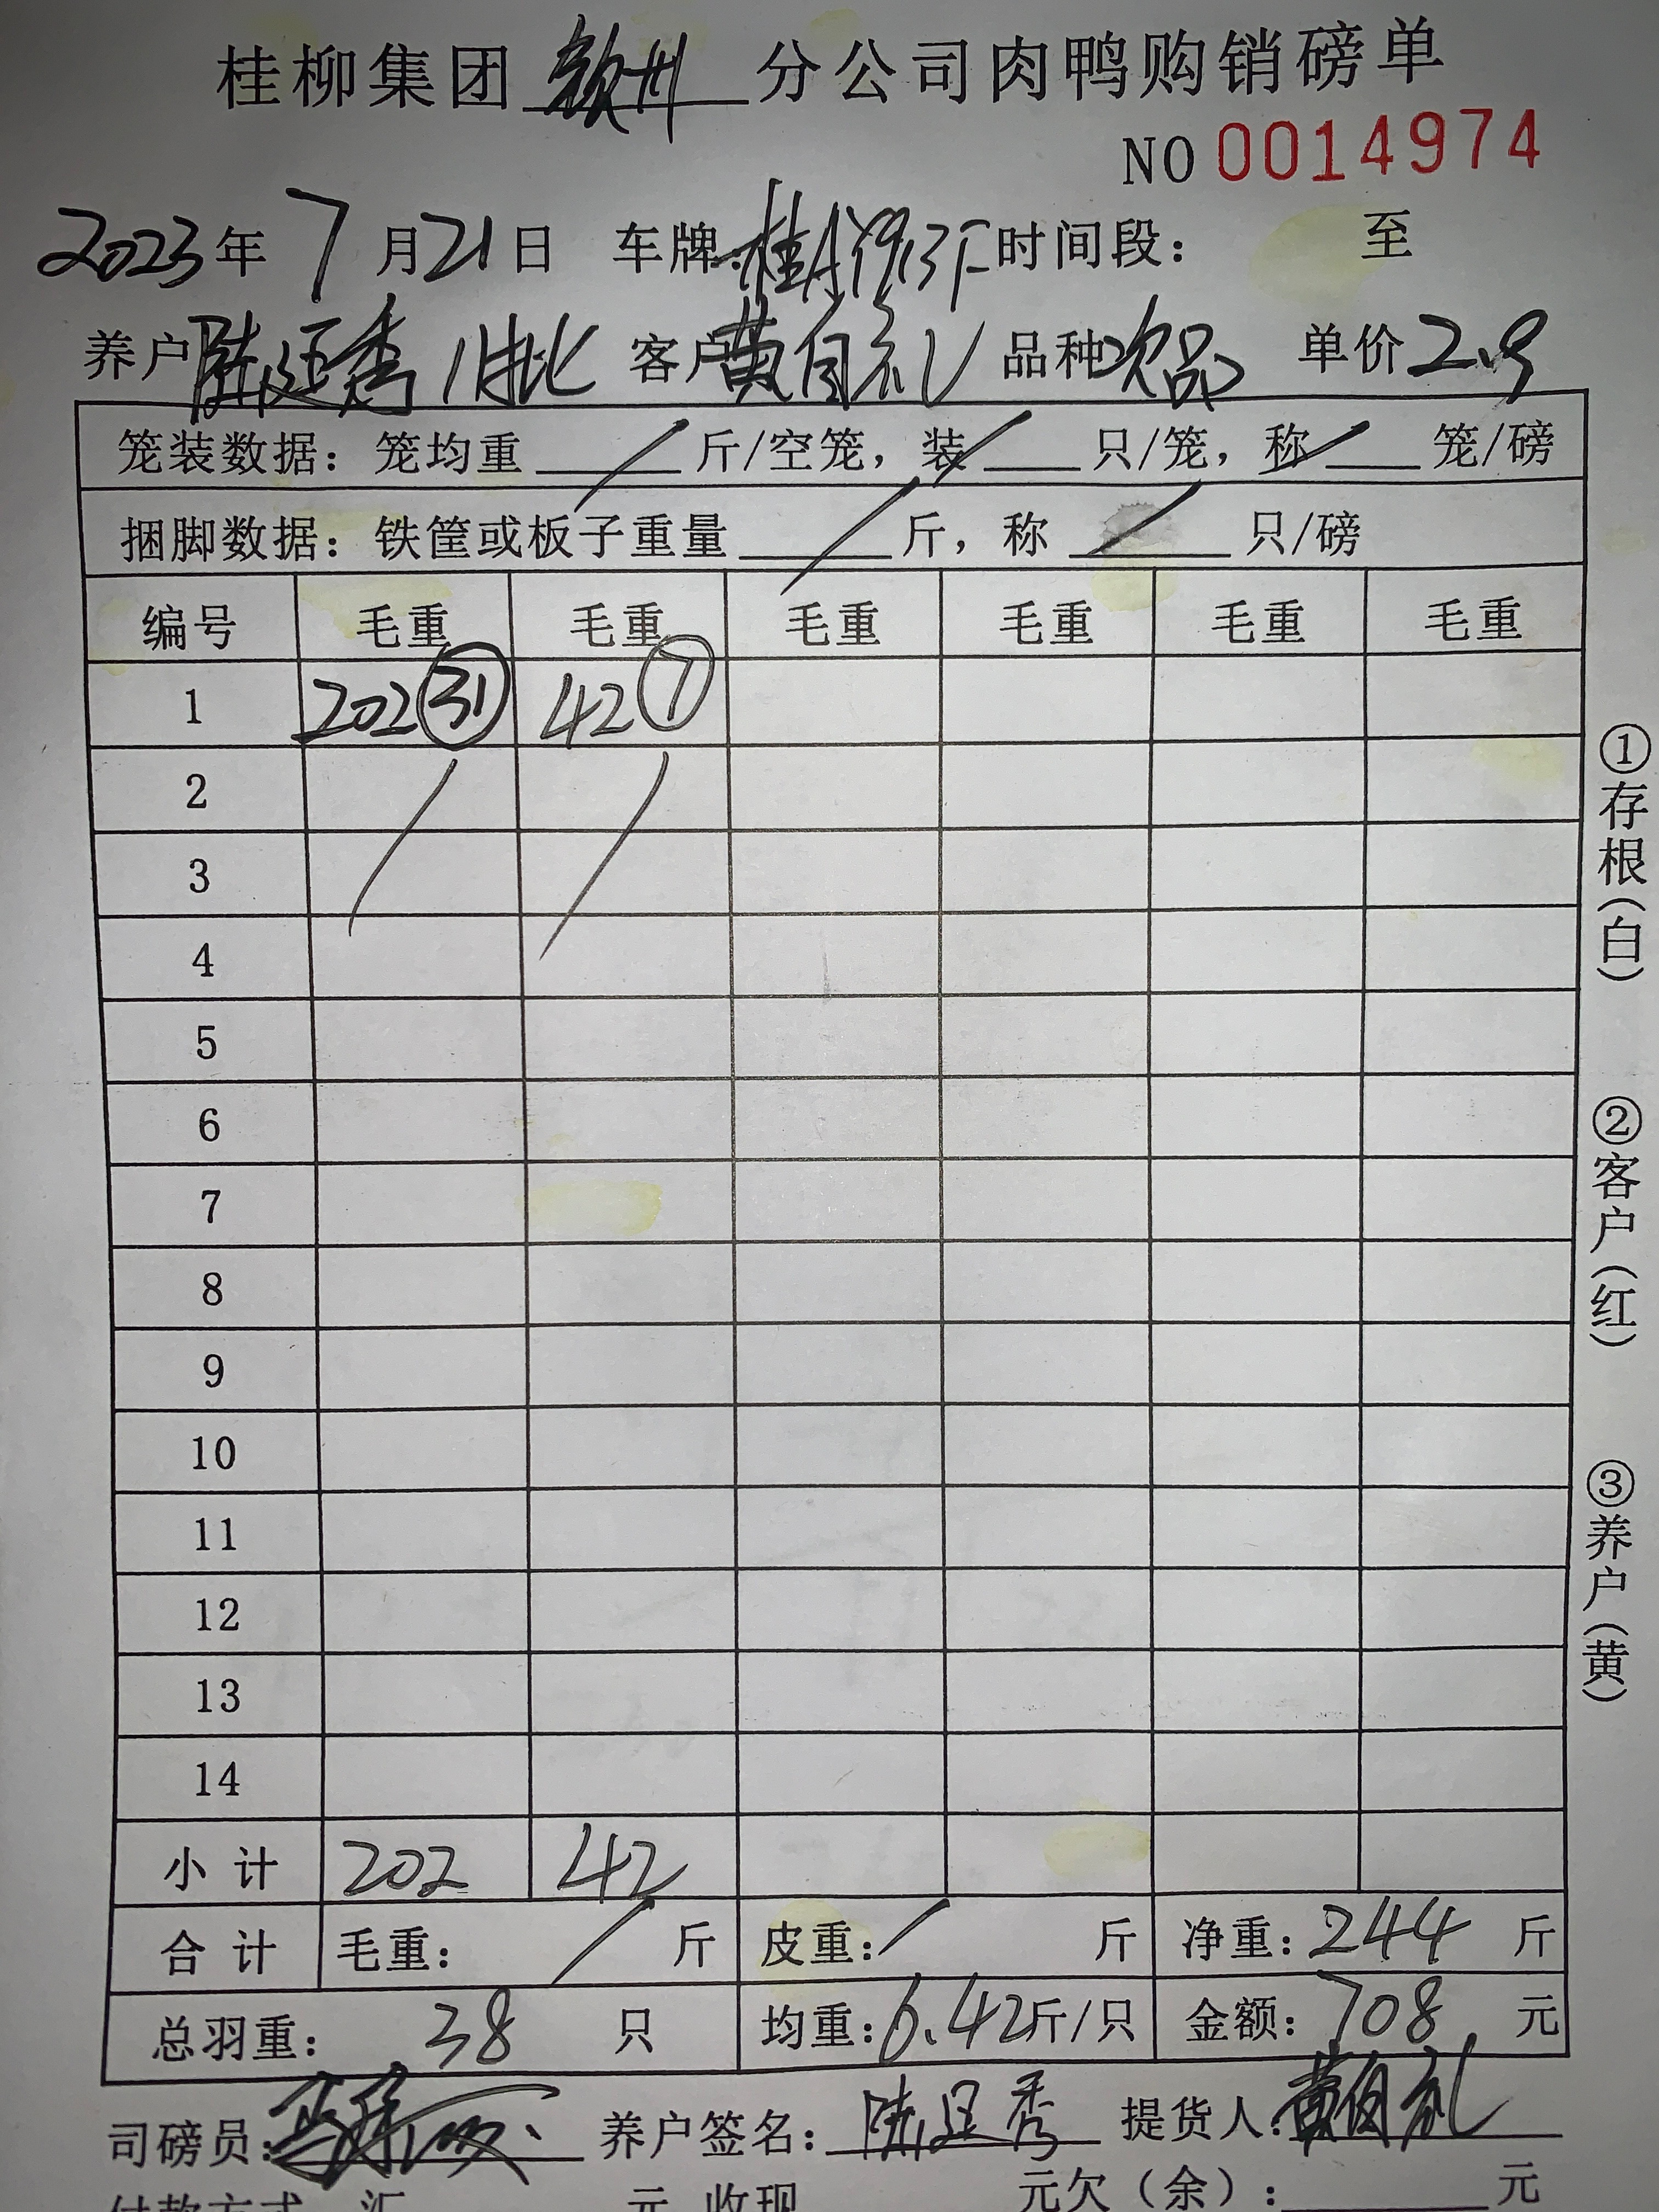 桂柳集团 钦州 分公司肉鸭购销磅单
NO 0014974
2023年 7月21日 车牌: 时间段: 至
养户 陆廷秀 1批 客户 黄自礼 品种 次品 单价 2.9
笼装数据: 笼均重 / 斤/空笼, 装 / 只/笼, 称 / 笼/磅
捆脚数据: 铁筐或板子重量 / 斤, 称 / 只/磅
编号 毛重 毛重 毛重 毛重 毛重 毛重
1 202 ㉛ 42 ⑦
2 / /
3
4
5
6
7
8
9
10
11
12
13
14
小计 202 42
合计 毛重: / 斤 皮重: / 斤 净重: 244 斤
总羽重: 38 只 均重: 6.42斤/只 金额: 708. 元
司磅员: 养户签名: 陆廷秀 提货人: 黄自礼
付款方式 汇 元 收现 元欠(余): 元
①存根(白)
②客户(红)
③养户(黄)